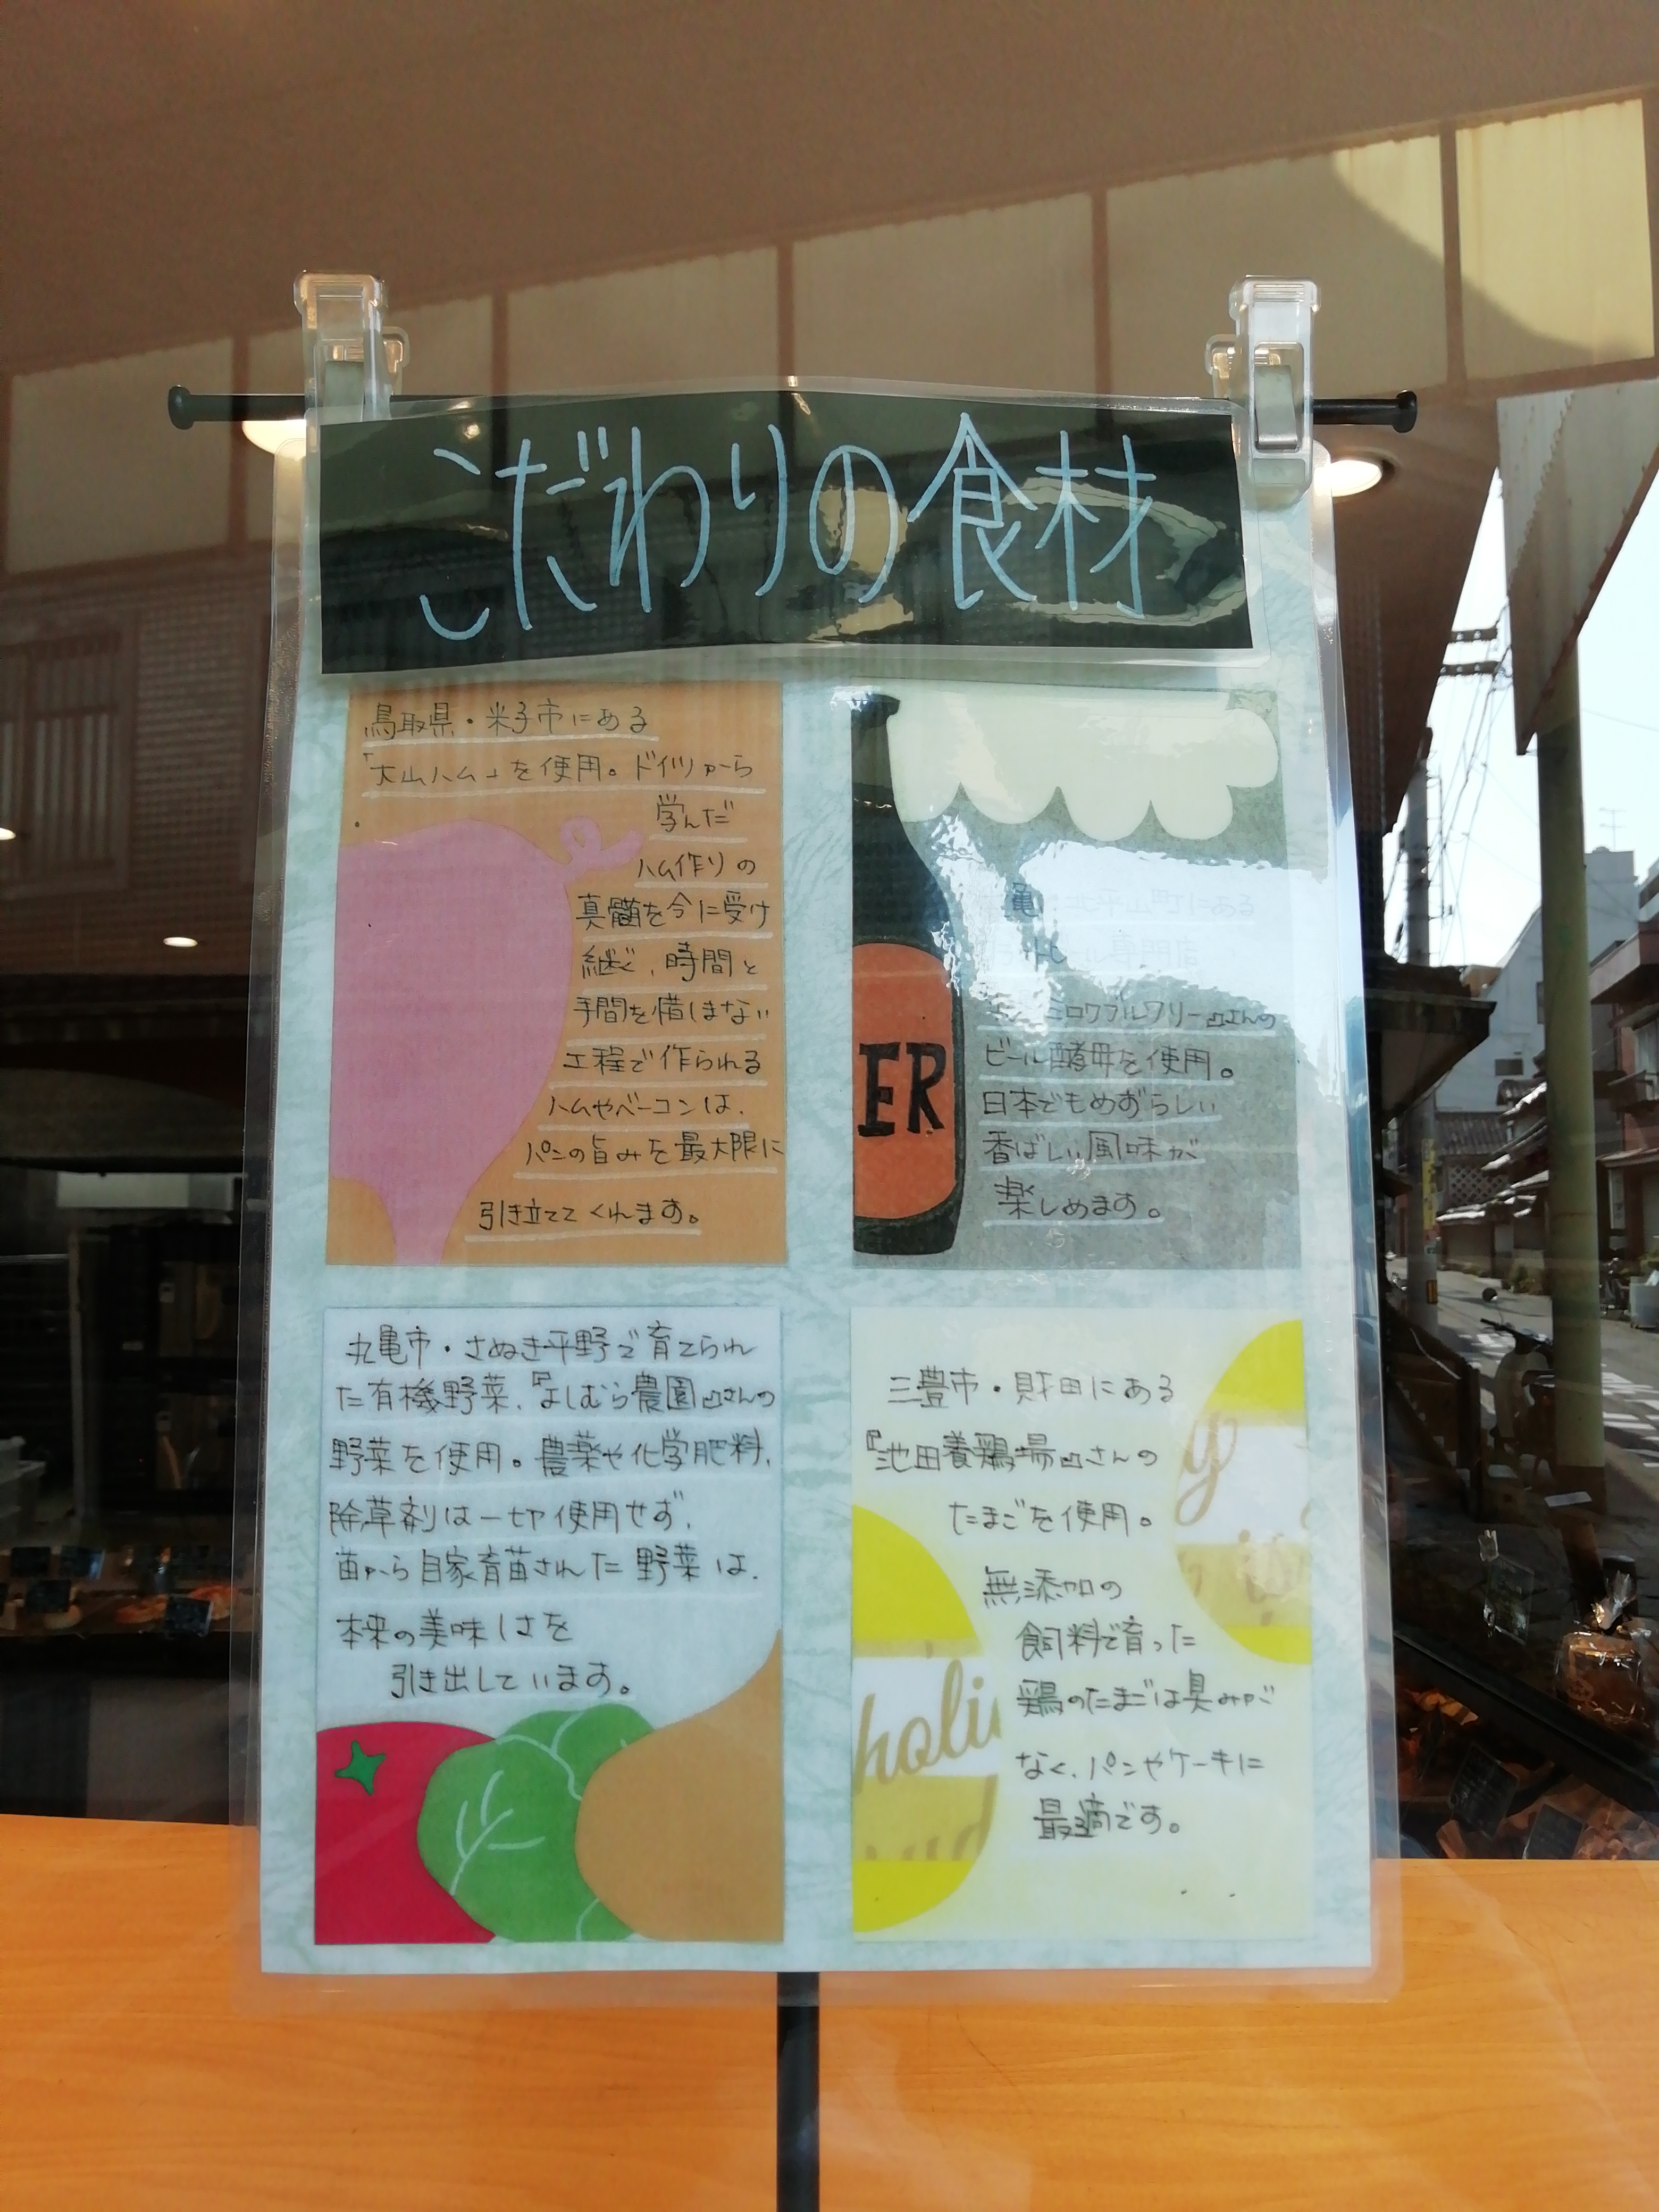 こだわりの食材
鳥取県・米子市にある
「大山ハム」を使用。ドイツから
学んだ
ハム作りの
真髄を今に受け
継ぐ、時間と
手間を惜しまない
工程で作られる
ハムやベーコンは、
パンの旨みを最大限に
引き立ててくれます。
山町にある
ミロクブルワリー』さんの
ビール酵母を使用。
日本でもめずらしい
香ばしい風味が
楽しめます。
ER
丸亀市・さぬき平野で育てられ
た有機野菜、『よしむら農園』さんの
野菜を使用。農薬や化学肥料、
除草剤は一切使用せず、
苗から自家育苗された野菜は、
本来の美味しさを
引き出しています。
三豊市・財田にある
『池田養鶏場』さんの
たまごを使用。
無添加の
飼料で育った
鶏のたまごは臭みが
なく、パンやケーキに
最適です。